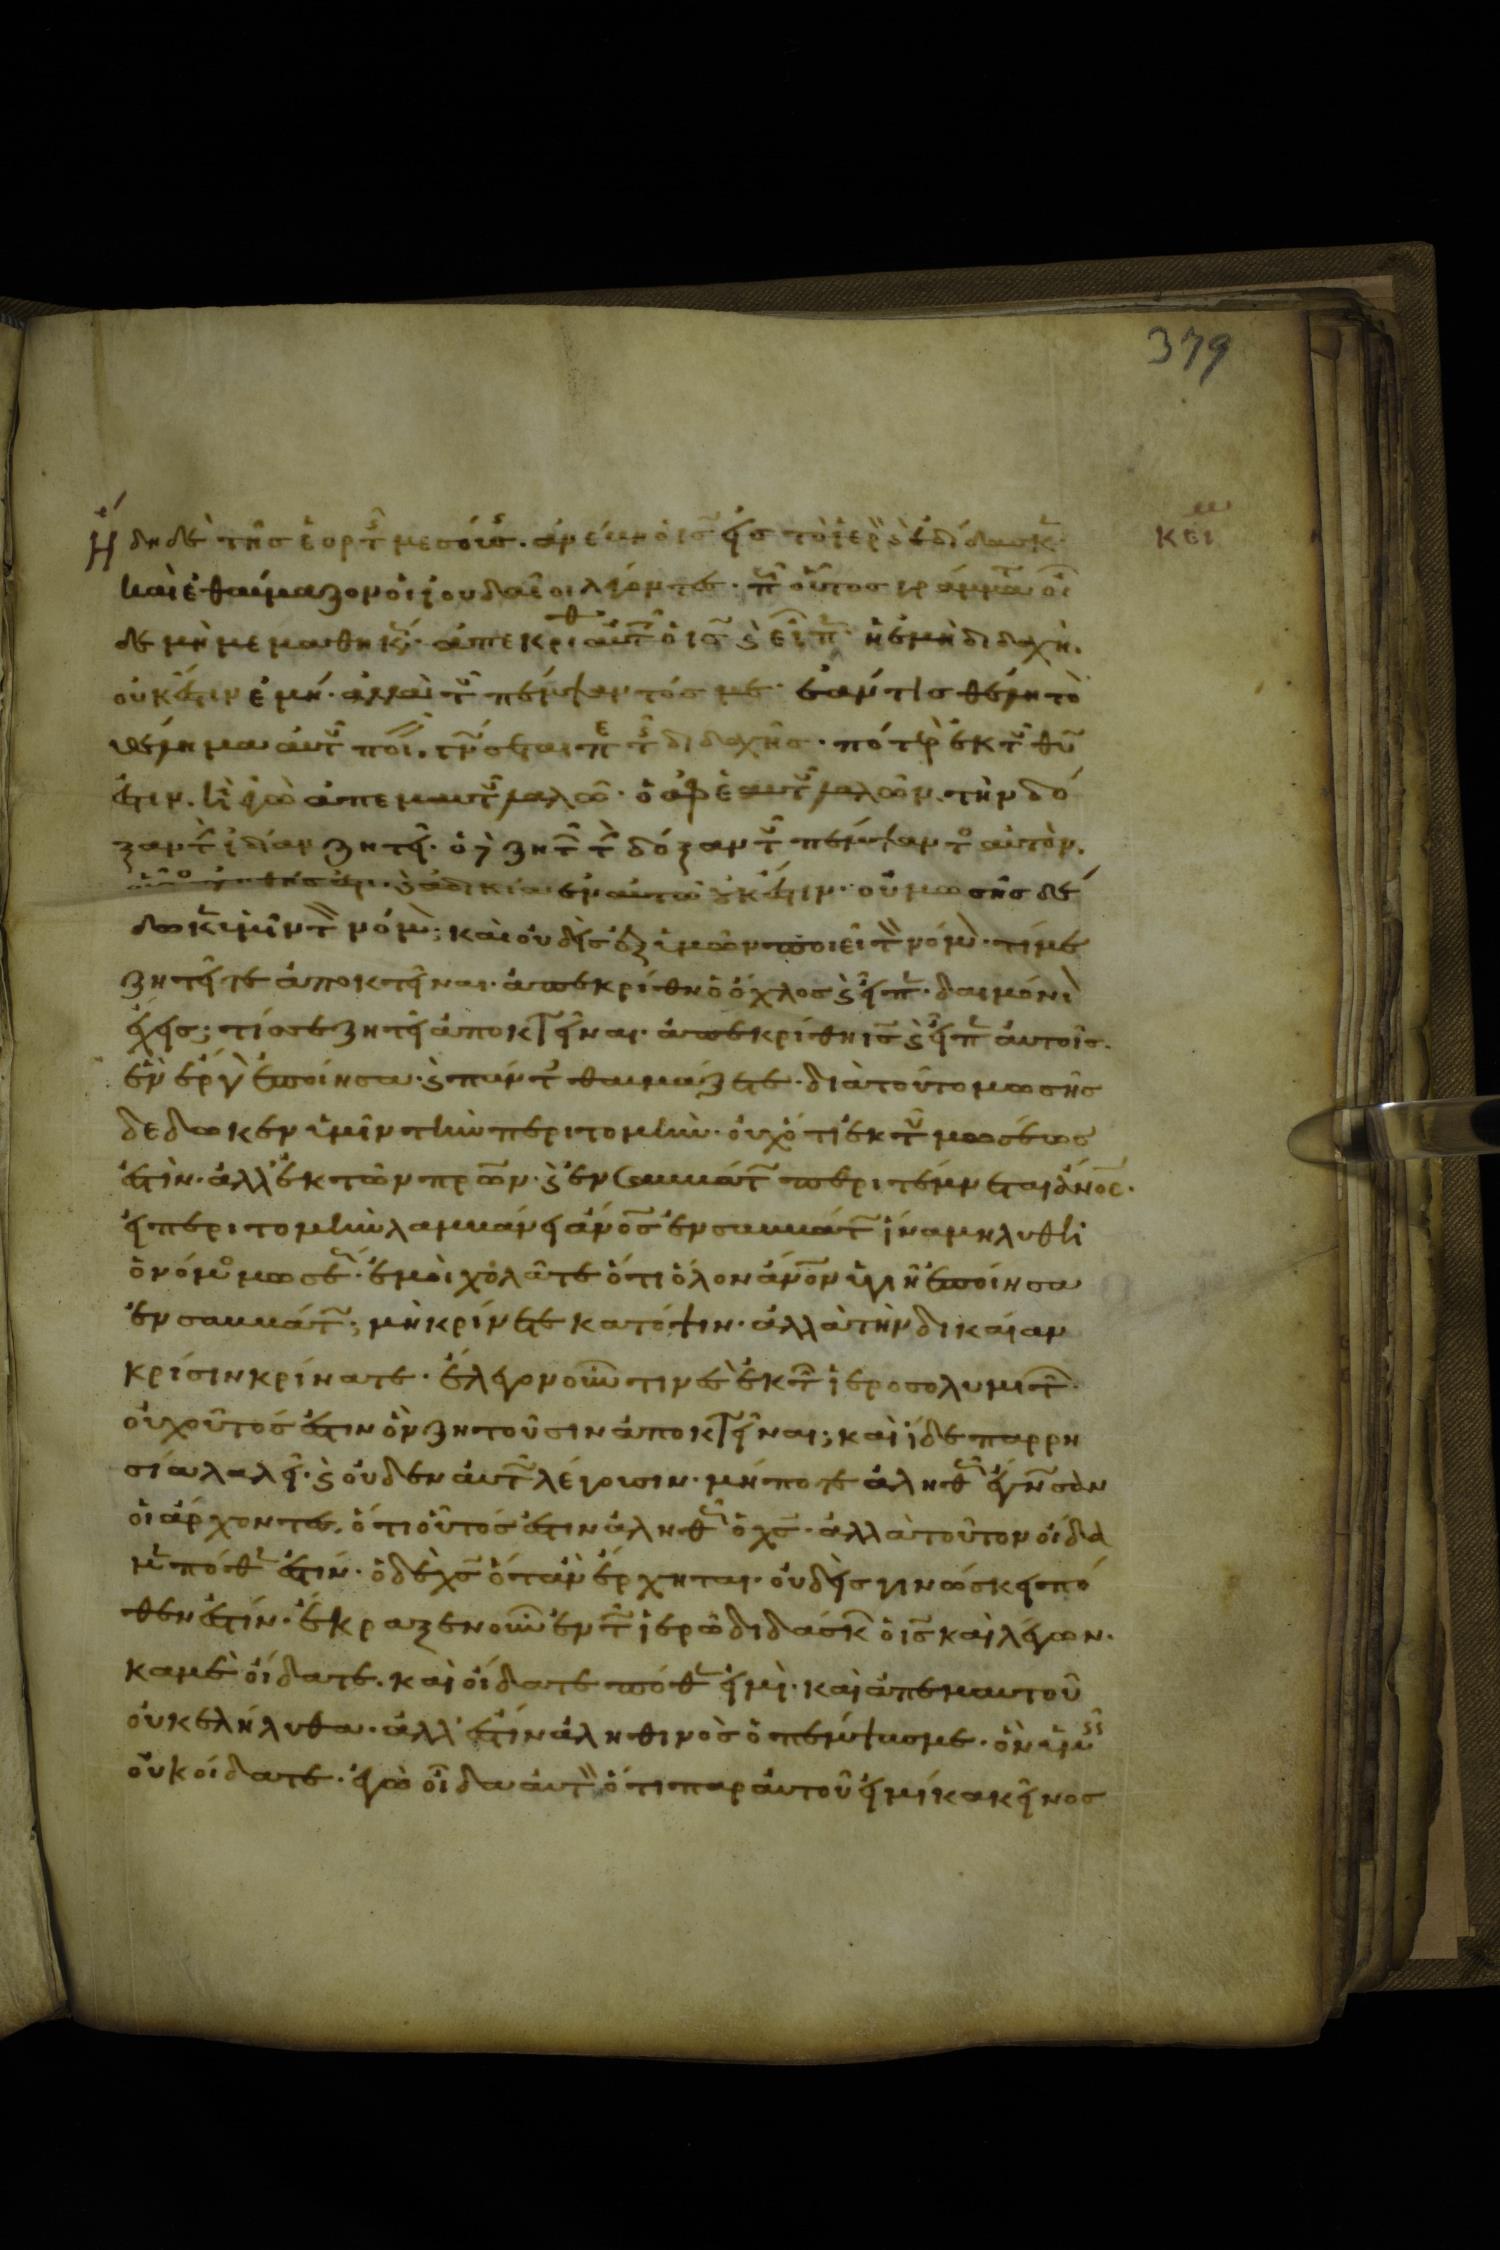 379
Ἤδη δὲ τῆς ἑορτ μεσούσ. ἀνέβη ὁ ις εἰς τὸ ἱερὸ ὲ ἐδίδασκ
κει
καὶ ἐθαύμαζον οἱ ἰουδαῖοι λέγοντες. π οὗτος γράμμα οἶ
δε μὴ μεμαθηκ. ἀπεκριθ αὐτ ὁ ις ϛ εἶπ. ἡ ἐμὴ διδαχὴ.
οὐκ ἔστιν ἐμή. ἀλλὰ τ πέμψαντός με. ἐάν τις θέλη τὸ
θέλημα αὐτ ποι. γνώσεται πε τ διδαχῆς. πότερ ἐκ τ θυ
ἐστιν. ἢ ἐγὼ ἀπεμαυτ λαλῶ. ὁ ἀφ ἑαυτ λαλῶν. τὴν δό
ξαν τ ἰδίαν ζητεῖ. ὁ δ ζητ τ δόξαν τ πέμψαντ αὐτὸν.
οὗτο ἀληθής ἐστι. ϛ ἀδικία ἐν αὐτω οὐκ ἔστιν. οὐ μωσῆς δέ
δωκ ὑμῖν τ νόμ; καὶ οὐδεὶς ἐξ ὑμῶν ποιεῖ τ νόμ. τί με
ζητεῖτε ἀποκτεῖναι. ἀπεκρίθη ὁ ὄχλος ϛ εἶπ. δαιμόνι
ἔχεις; τίς σε ζητεῖ ἀποκτεῖναι. ἀπεκρίθη ις ϛ εἶπ αὐτοῖς.
ἓν ἔργ ἐποίησα. ϛ πάντ θαυμάζετε. διὰ τοῦτο μωσῆς
δέδωκεν ὑμῖν τὴν περιτομὴν. οὐχ ὅτι ἐκ τ μωσέως
ἐστὶν. ἀλλ ἐκ τῶν πρων. ϛ ἐν σαββάτ περιτέμνεται ἄνος.
εἰ περιτομὴν λαμβάνει ἄνος ἐν σαββάτ ἵνα μὴ λυθῆ
ὁ νόμο μωσέ. ἐμοὶ χολᾶτε ὅτι ὅλον ἄνον ὑγιῆ ἐποίησα
ἐν σαββάτ; μὴ κρίνετε κατόψιν. ἀλλὰ τὴν δικαίαν
κρίσιν κρίνατε. ἔλεγον οὖν τινὲς ἐκ τ ἱεροσολυμιτ.
οὐχ οὗτός ἐστιν ὃν ζητοῦσιν ἀποκτεῖναι; καὶ ἴδε παρρη
σία λαλεῖ. ϛ οὐδεν αὐτ λέγουσιν. μήποτε ἀληθ ἔγνωσαν
οἱ ἄρχοντες. ὅτι οὗτός ἐστιν ἀληθ ὁ χς. ἀλλὰ τοῦτον οἴδα
μ πόθ ἐστίν. ὁ δὲ χς ὅταν ἔρχηται. οὐδεὶς γινώσκει πό
θεν ἐστίν. ἔκραξεν οὖν ἐν τ ἱερῶ διδάσκ ὁ ις καὶ λέγων.
καμὲ οἴδατε. καὶ οἴδατε πόθ εἰμὶ. καὶ ἀπεμαυτοῦ
οὐκ ἐλήλυθα. ἀλλ' ἐστιν ἀληθινὸς ὁ πέμψας με. ὃν ὑμ
οὐκ οἴδατε. ἐγὼ οἶδα αὐτ ὅτι παρ αὐτοῦ εἰμί κακεῖνος